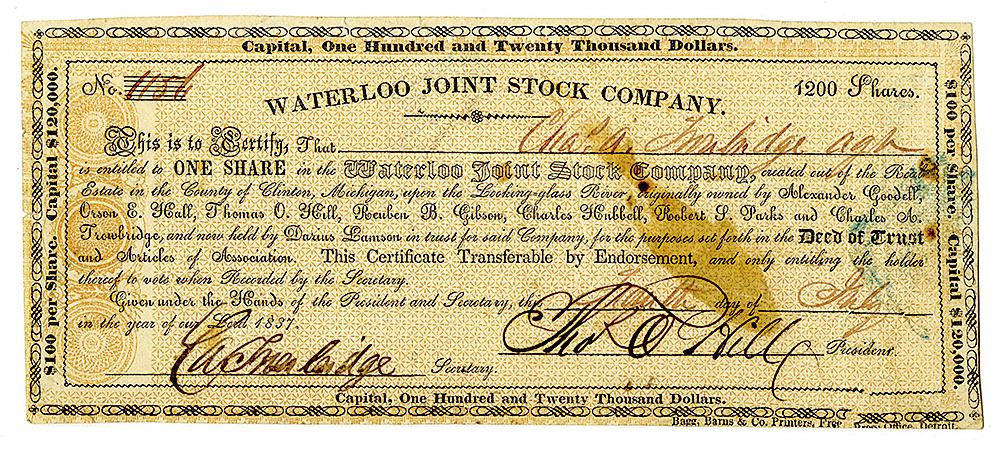 Capital, One Hundred and Twenty Thousand Dollars.
No. 1186 WATERLOO JOINT STOCK COMPANY. 1200 Shares.
This is to Certify, That Chas. A. Trowbridge
is entitled to ONE SHARE in the Waterloo Joint Stock Company, created out of the Real
Estate in the County of Clinton, Michigan, upon the Looking-glass River, originally owned by Alexander Goodell,
Orson E. Hall, Thomas O. Hill, Reuben B. Gibson, Charles Hubbell, Robert S. Parks and Charles A.
Trowbridge, and now held by Darius Lamson in trust for said Company, for the purposes set forth in the Deed of Trust
and Articles of Association. This Certificate Transferable by Endorsement, and only entitling the holder
thereof to vote when Recorded by the Secretary.
Given under the Hands of the President and Secretary, the day of July
in the year of our Lord 1837.
Tho O Hill President
C A Trowbridge Secretary.
Capital, One Hundred and Twenty Thousand Dollars.
Bagg, Barns & Co. Printers, Free Press Office, Detroit.
$100 per Share. Capital $120,000.
$100 per Share. Capital $120,000.